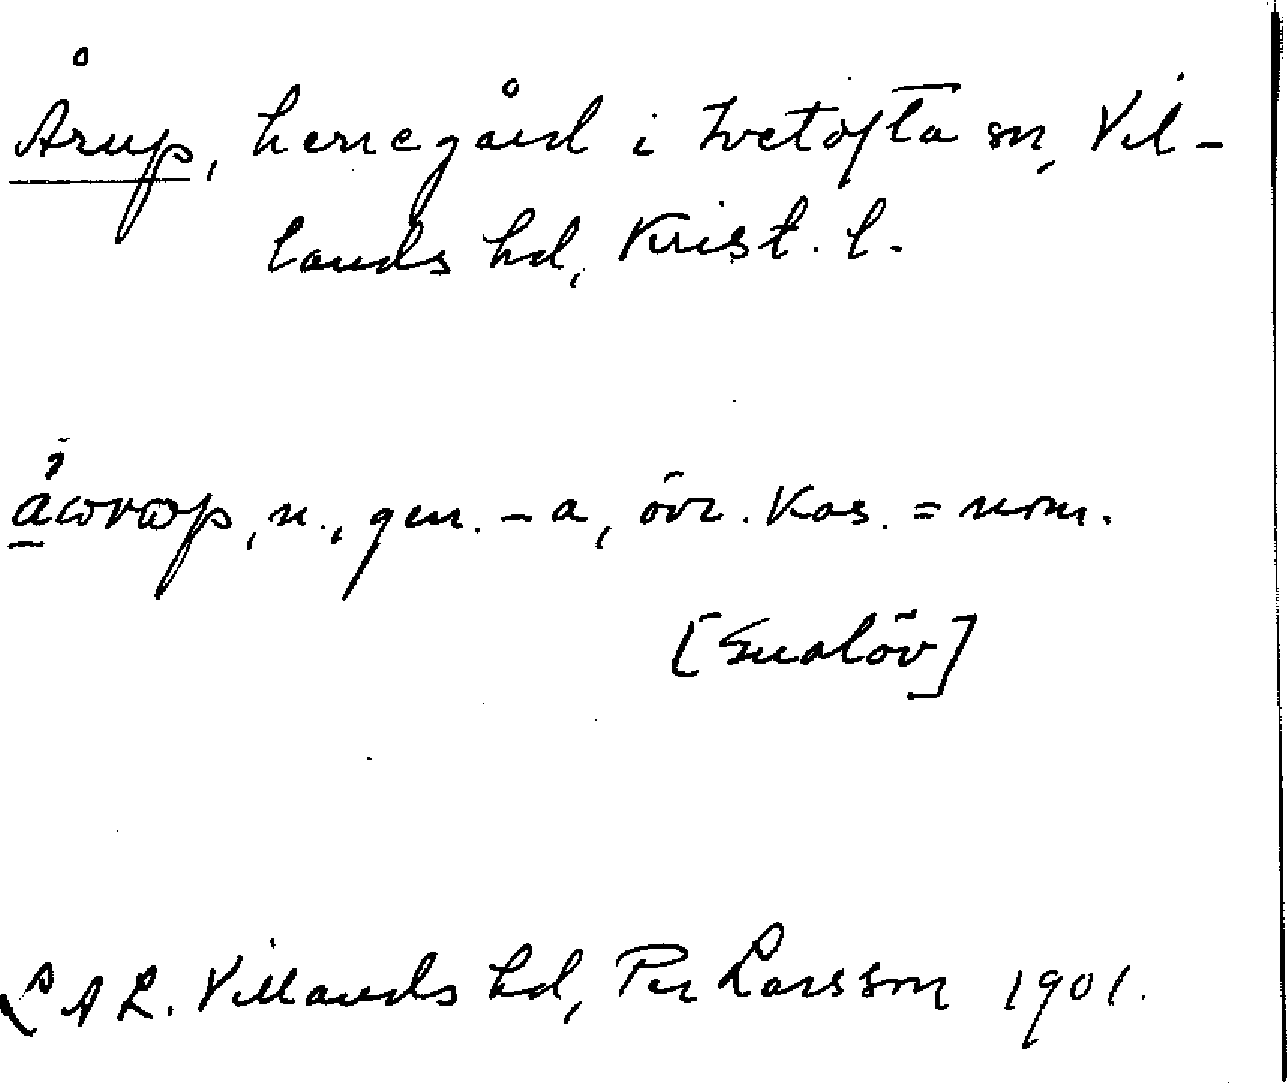 Årup, herregård i Ivetofta sn, Vil-
lands hd, Krist. l.
n., gen. -a, övr. kas. = nom.
[Gualöv]
LAL. Villands hd, Per Larsson 1901.